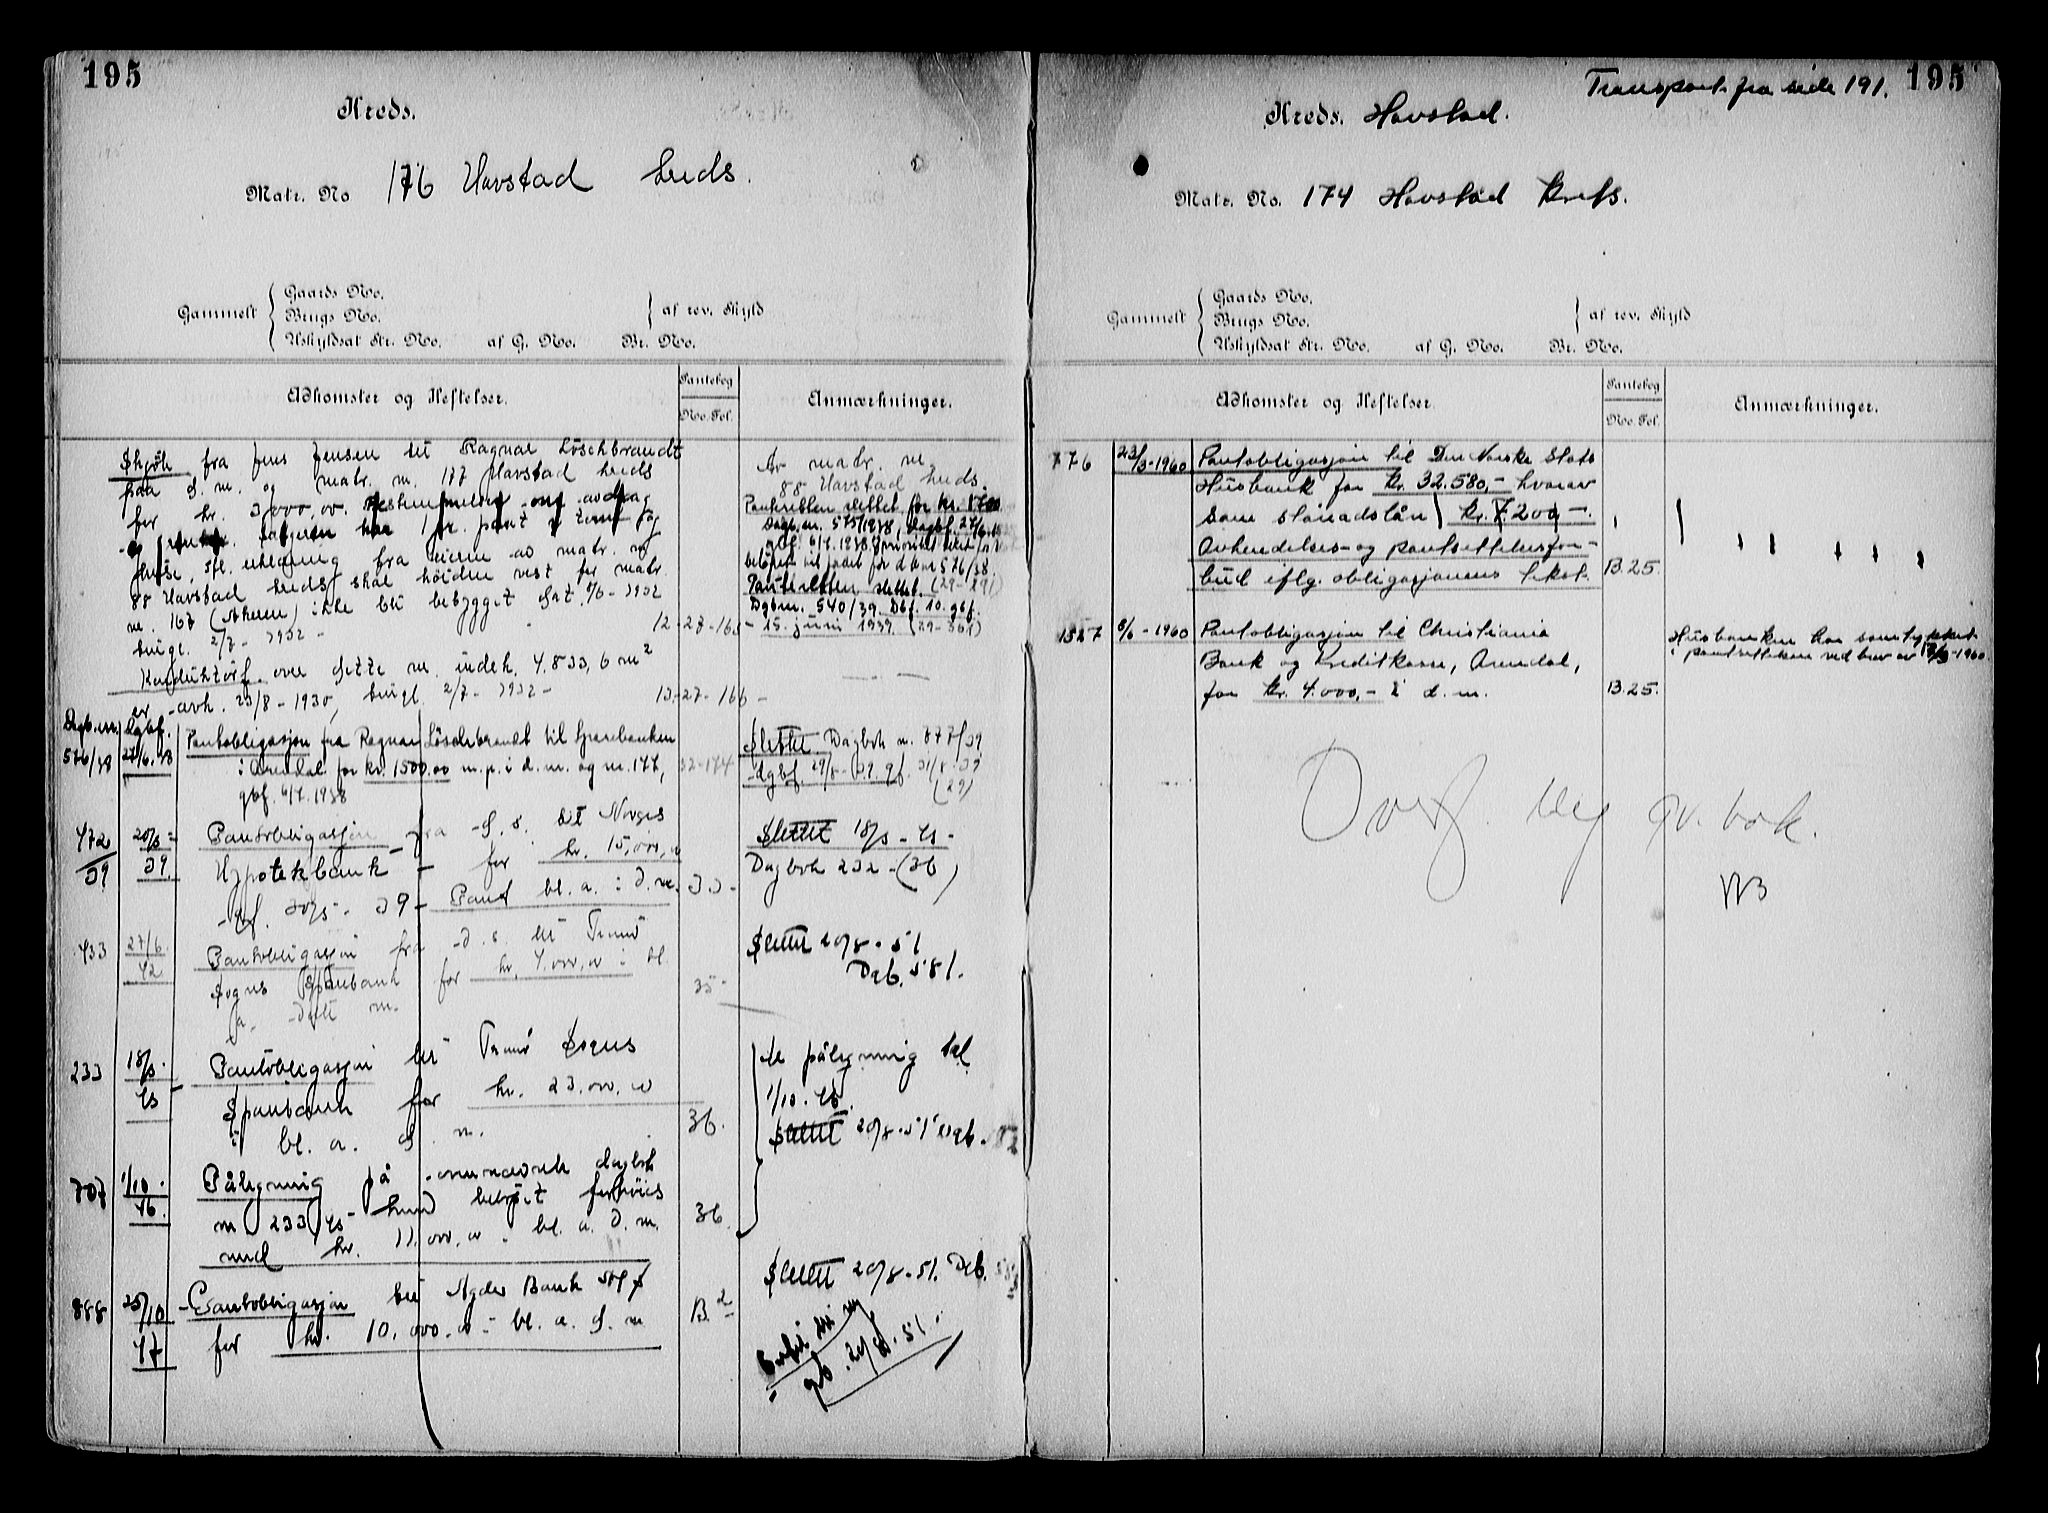 195
Kreds.
Matr. No 176 Havstad kreds.
Gammelt { Gaards No.
Brugs No.
Uskyldsat Str. No. af G. No. Br. No.
} af rev. Skyld
Adkomster og Heftelser.
Pantebog
No. Fol.
Anmærkninger.
Skjöte fra Jens Jensen til Ragnar Löschbrandt
paa d. m. og matr. nr. 177 Havstad kreds
for kr. 3000,00. Bestemmelser om avdrag
og renter. Selgeren har 1. pr. pant i tomt og
Huse. Ifl. erklæring fra eieren av matr. nr
88 Havstad kreds skal höiden vest for matr.
nr. 167 (Åsheim) ikke bli bebygget. Dat. 1/6 - 1932
tingl. 2/7 - 1932 - 12-27-165 -
Konduktörf. over dette nr. indeh. 4.833,6 m²
er avh. 23/8 - 1930, tingl. 2/7 - 1932 - 12-27-166 -
Ar matr. nr
88 Havstad kreds.
Panteretten slettet for kr. 1700
Dagb. nr. 575/1938, dagbf. 27/6 1938
gbf. 6/7. 1938. Prioritet veket
beløpet til fordel for d. b. nr 576/38.
Panteretten slettet. (29-291)
Dgb nr. 540/39. Dbf. 10. gbf.
15. juni 1939. (29-367)
Dagb. nr. Dgbf.
576/38 27/6.38 Pantobligasjon fra Ragnar Löschbrandt til Sparebanken
i Arendal for kr. 1500.00 m. p. i d. m. og nr. 177, 32-174
gbf. 6/7. 1938
Slettet Dagbok nr. 877/39
dgbf. 29/8 - 39. gf. 31/8 - 39
(29)
472/39 20/5 - 39. Pantobligasjon fra d. s. til Norges
Hypotekbank for kr. 15.000,00
gf. 30/5 - 39 - Pant bl. a. i d. m. 33 -
Slettet 18/3 - 45 -
Dagbok 232 - (36)
433 27/6 42 Pantobligasjon fra d. s. til Tromö
Sogns Sparebank for kr. 4.000,00 i bl.
a. dette nr. 35 -
Slettet 20/8 - 51
Dgb. 581.
233 18/3 - 45 Pantobligasjon til Tromö Sogns
Sparebank for kr. 23.000,00
i bl. a. d. m. 36.
Se påtegning dat
1/10 - 46.
Slettet 20/8 - 51 Dgb. 582
707 1/10 - 46. Påtegning på ovennevnte dagbok
nr 233/45 - hvis beløpet forhöies
med kr. 11.000,00 i bl. a. d. m. 36.
888 25/10 47 Pantobligasjon til Agdes Bank A/S
for kr. 10.000,00 i bl. a. d. m B. 2
Slettet 20/8 - 51. Dgb. 583
Overført til ny
gb. 20/8 - 51.
Transport fra side 191. 195
Kreds. Havstad.
Matr. No. 174 Havstad Krets.
Gammelt { Gaards No.
Brugs No.
Uskyldsat Str. No. af G. No. Br. No.
} af rev. Skyld
Adkomster og Heftelser.
Pantebog
No. Fol.
Anmærkninger.
776 23/3-1960 Pantobligasjon til Den Norske Stats
Husbank for kr. 32.580,- hvorav
som stønadslån kr. 7200,-.
Avhendelses- og pantsettelsesfor-
bud iflg. obligasjonens tekst. B. 25.
1327 8/6 - 1960 Pantobligasjon til Christiania
Bank og Kreditkasse, Arendal,
for kr. 4.000,- i d. m. B. 25.
Husbanken har samtykket
i pantsettelsen ved brev av 13/5-1960.
Overf. ny gr. bok.